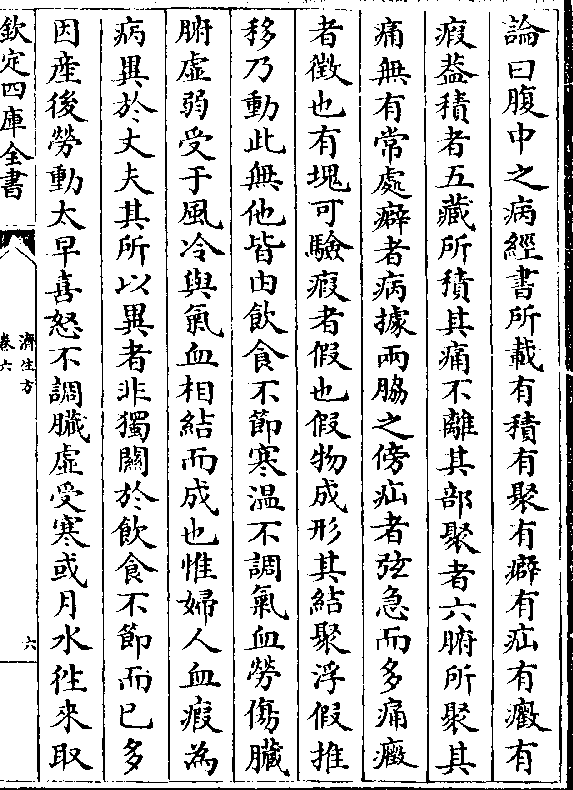 論曰腹中之病經書所載有積有聚有癖有疝有癥有
瘕葢積者五藏所積其痛不離其部聚者六腑所聚其
痛無有常處癖者病據兩脇之傍疝者弦急而多痛癥
者徵也有塊可驗瘕者假也假物成形其結聚浮假推
移乃動此無他皆由飲食不節寒温不調氣血勞傷臟
腑虛弱受于風冷與氣血相結而成也惟婦人血瘕為
病異於丈夫其所以異者非獨關於飲食不節而已多
因産後勞動太早喜怒不調臟虛受寒或月水徃来取
欽定四庫全書
濟生方
卷六
六